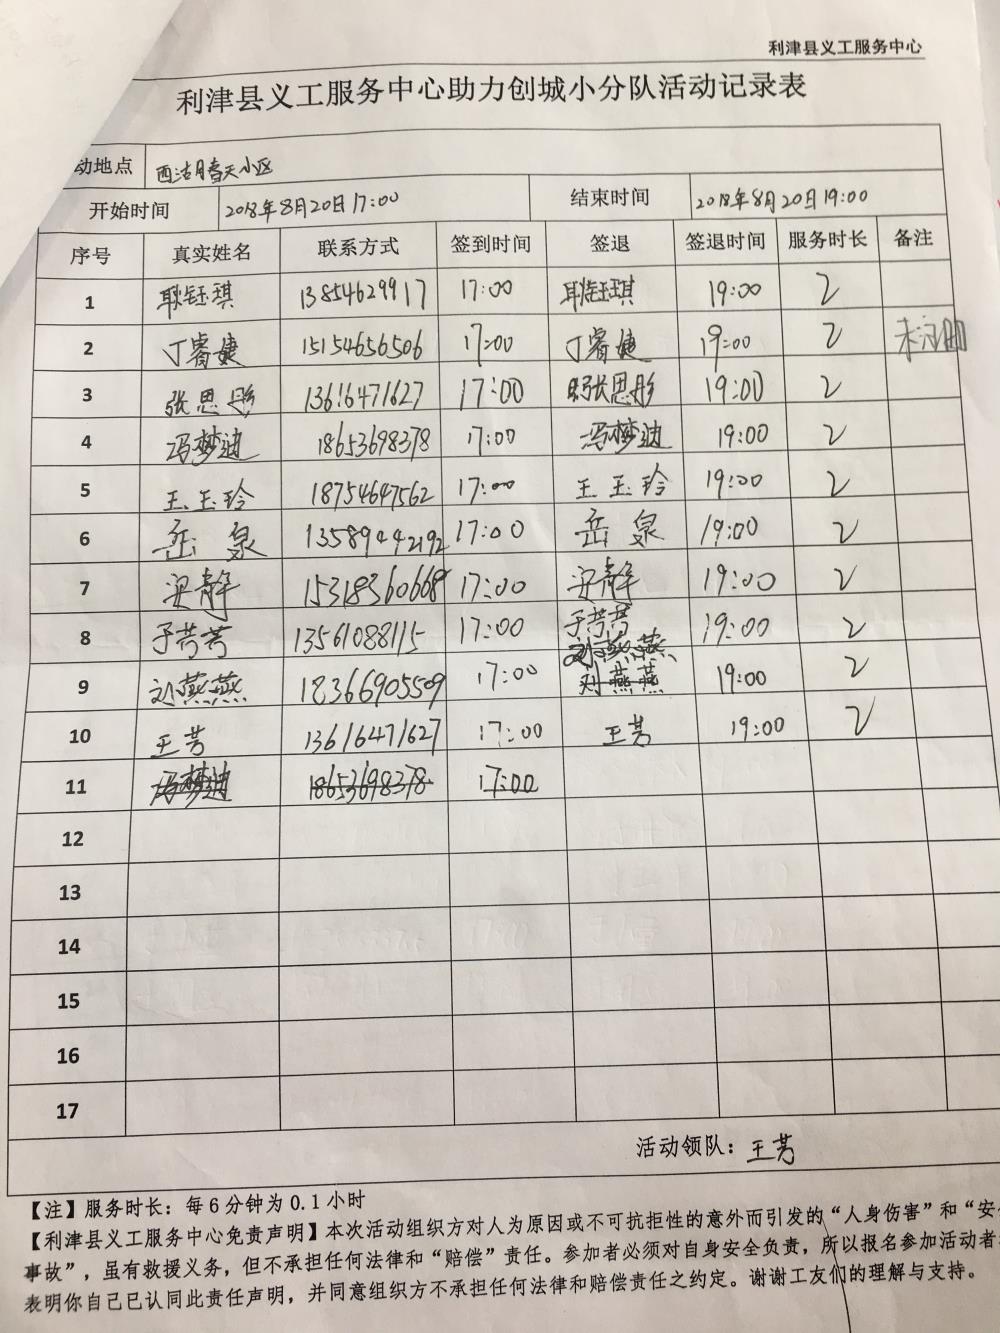 利津县义工服务中心
利津县义工服务中心助力创城小分队活动记录表
动地点 西沽晴天小区
开始时间 2018年8月20日17:00 结束时间 2018年8月20日19:00
序号 真实姓名 联系方式 签到时间 签退 签退时间 服务时长 备注
1 耿钰琪 13854629917 17:00 耿钰琪 19:00 2
2 丁睿婕 15154656506 17:00 丁睿婕 19:00 2 未注册
3 张思彤 13616471627 17:00 张思彤 19:00 2
4 冯梦迪 18653698378 17:00 冯梦迪 19:00 2
5 王玉玲 18754647562 17:00 王玉玲 19:00 2
6 岳泉 13589442192 17:00 岳泉 19:00 2
7 梁静 15318360668 17:00 梁静 19:00 2
8 于芳芳 13561088115 17:00 于芳芳 19:00 2
9 刘燕燕 18366905509 17:00 刘燕燕 刘燕燕 19:00 2
10 王芳 13616471627 17:00 王芳 19:00 2
11 冯梦迪 18653698378 17:00
12
13
14
15
16
17
活动领队：王芳
【注】服务时长：每6分钟为0.1小时
【利津县义工服务中心免责声明】本次活动组织方对人为原因或不可抗拒性的意外而引发的“人身伤害”和“安
事故”，虽有救援义务，但不承担任何法律和“赔偿”责任。参加者必须对自身安全负责，所以报名参加活动者
表明你自己已认同此责任声明，并同意组织方不承担任何法律和赔偿责任之约定。谢谢工友们的理解与支持。